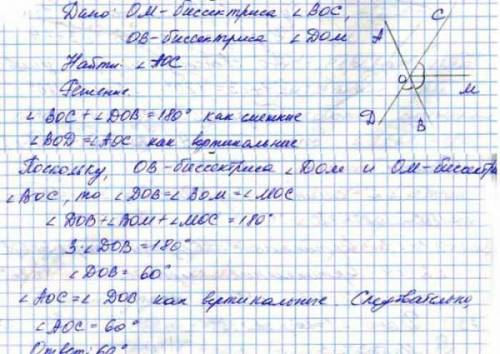 Дано: OM-биссектриса ∠BOC,
OB-биссектриса ∠DOM
Найти: ∠AOC
Решение
∠BOC + ∠DOB = 180° как смежные
∠BOD = ∠AOC как вертикальные
Поскольку, OB-биссектриса ∠DOM и OM-биссектр
∠BOC, то ∠DOB = ∠BOM = ∠MOC
∠DOB + ∠BOM + ∠MOC = 180°
3·∠DOB = 180°
∠DOB = 60°
∠AOC = ∠DOB как вертикальные Следовательно,
∠AOC = 60°
Ответ: 60°
A
C
O
M
D
B